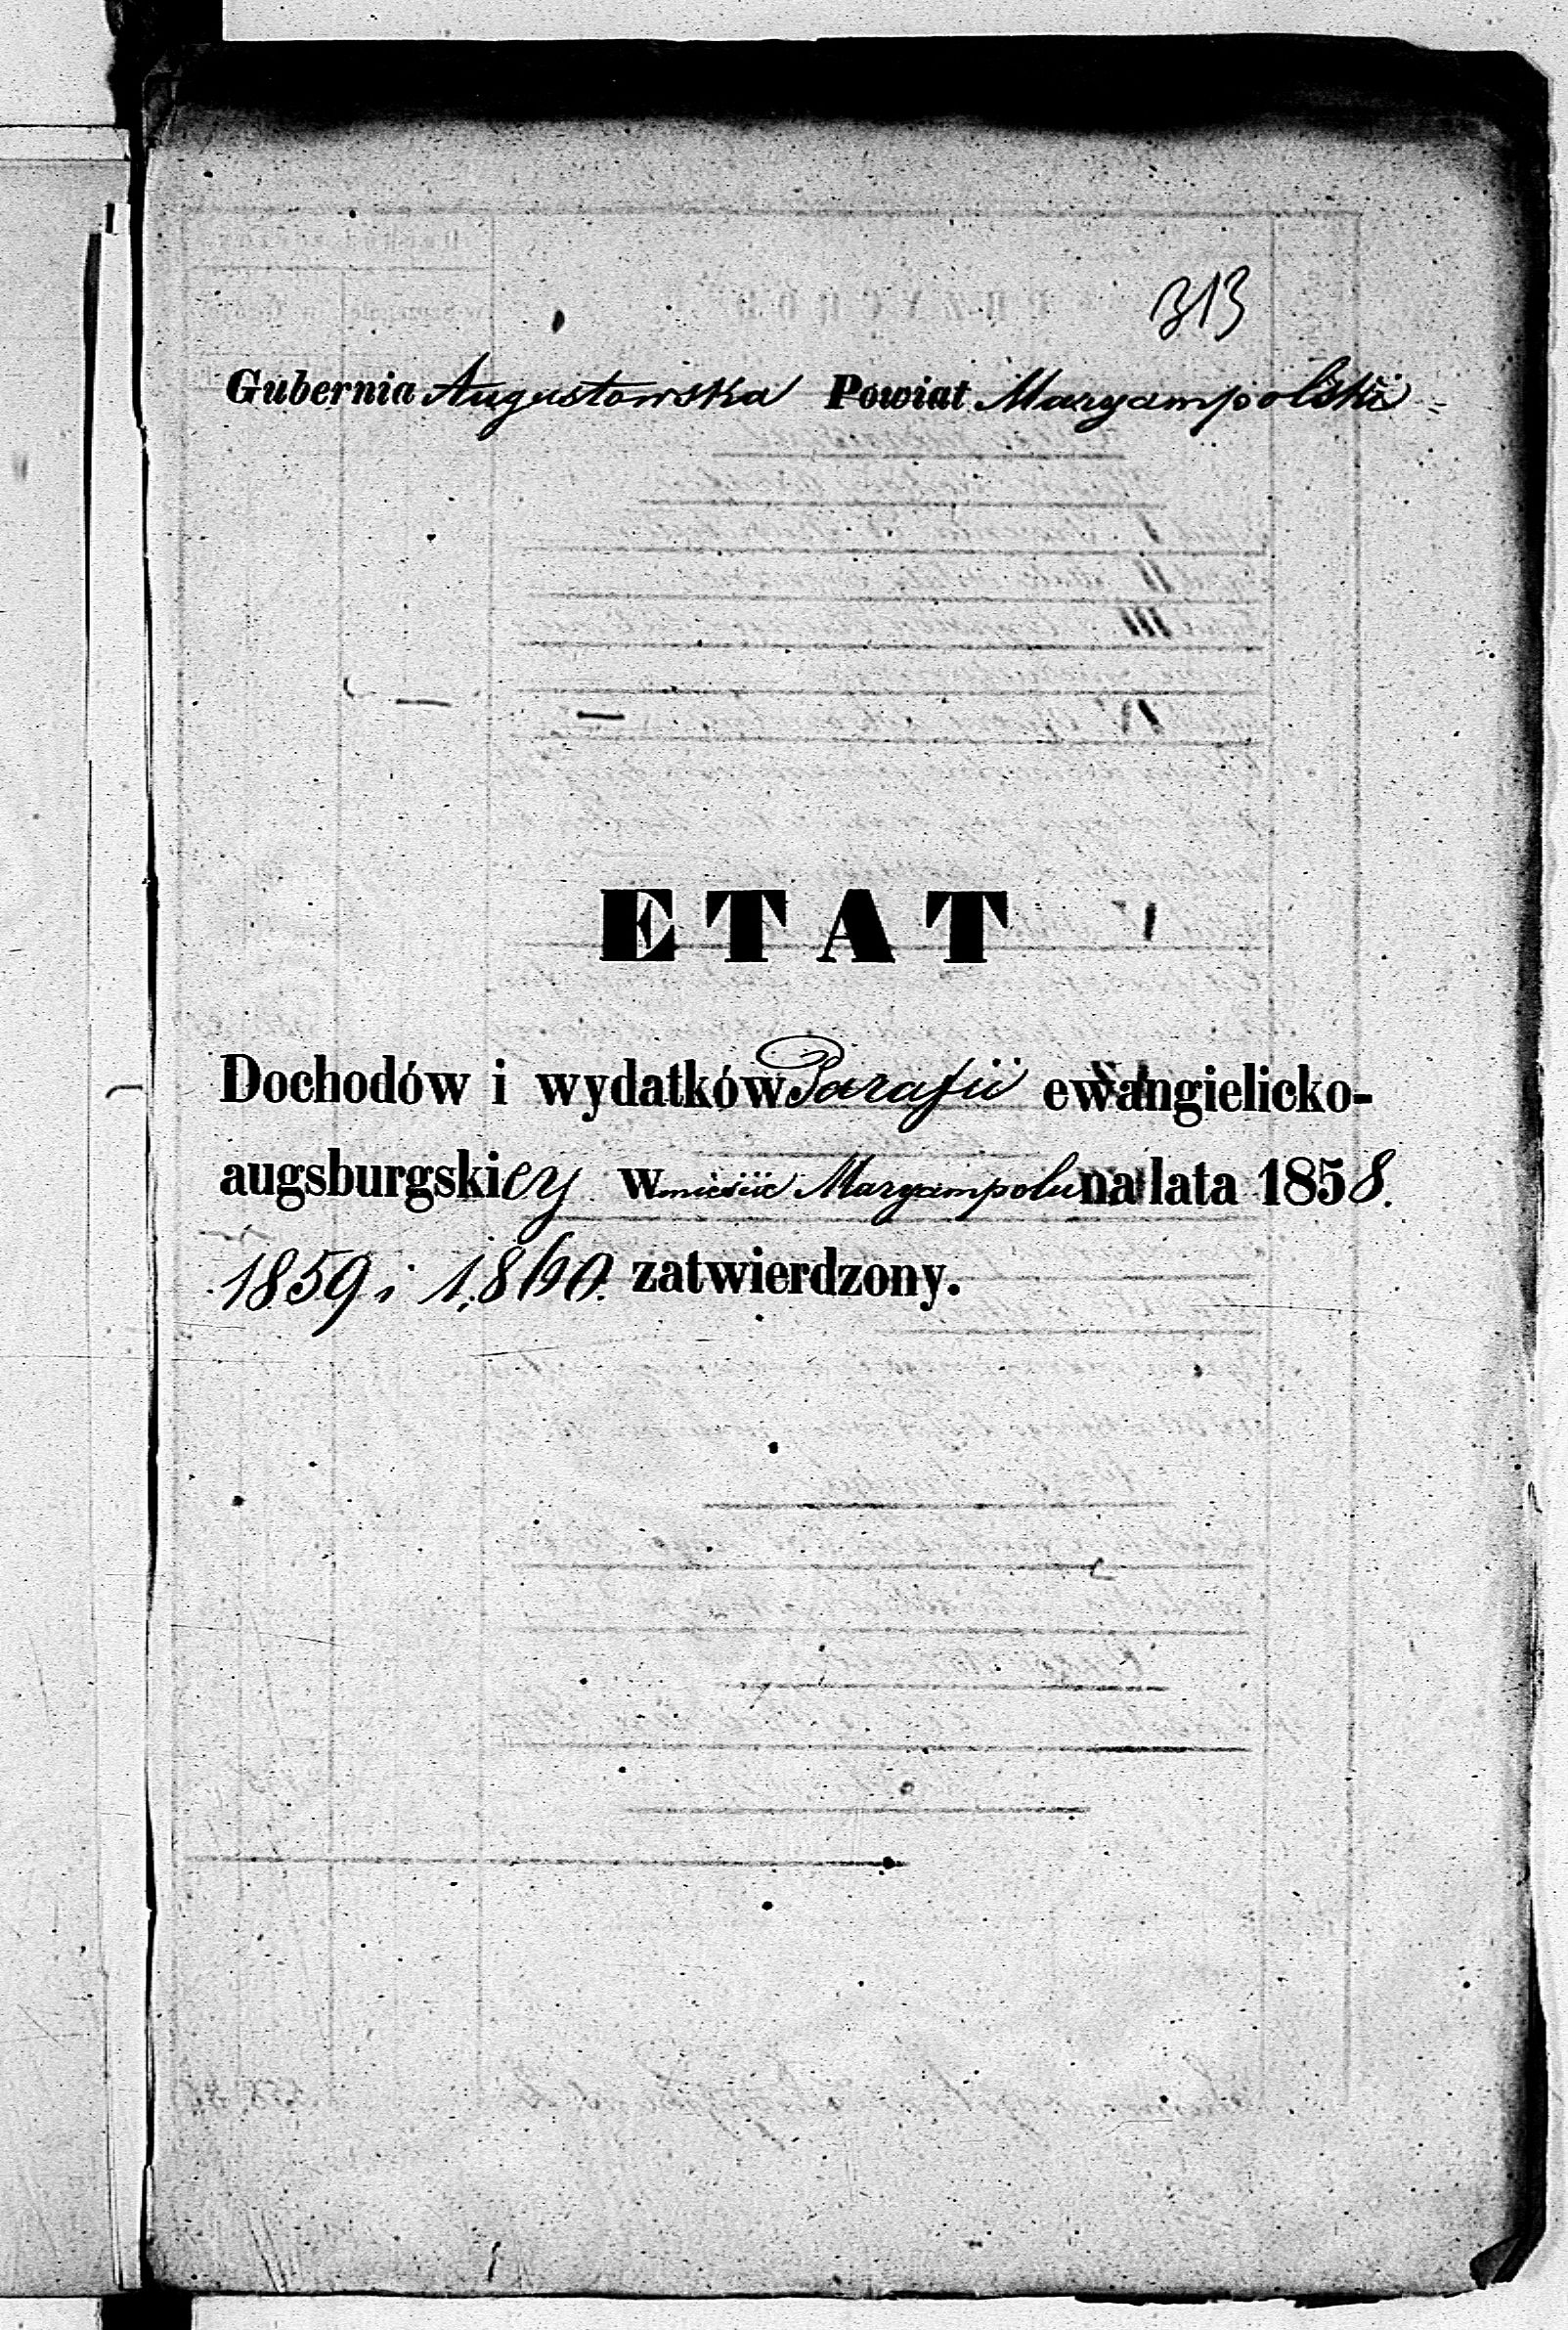 313
Gubernia Augustowska Powiat Maryampolski
ETAT
Dochodów i wydatków Parafii ewangielicko-
augsburgskiey w mieście Maryampolu na lata 1858.
1859 i 1860. zatwierdzony.